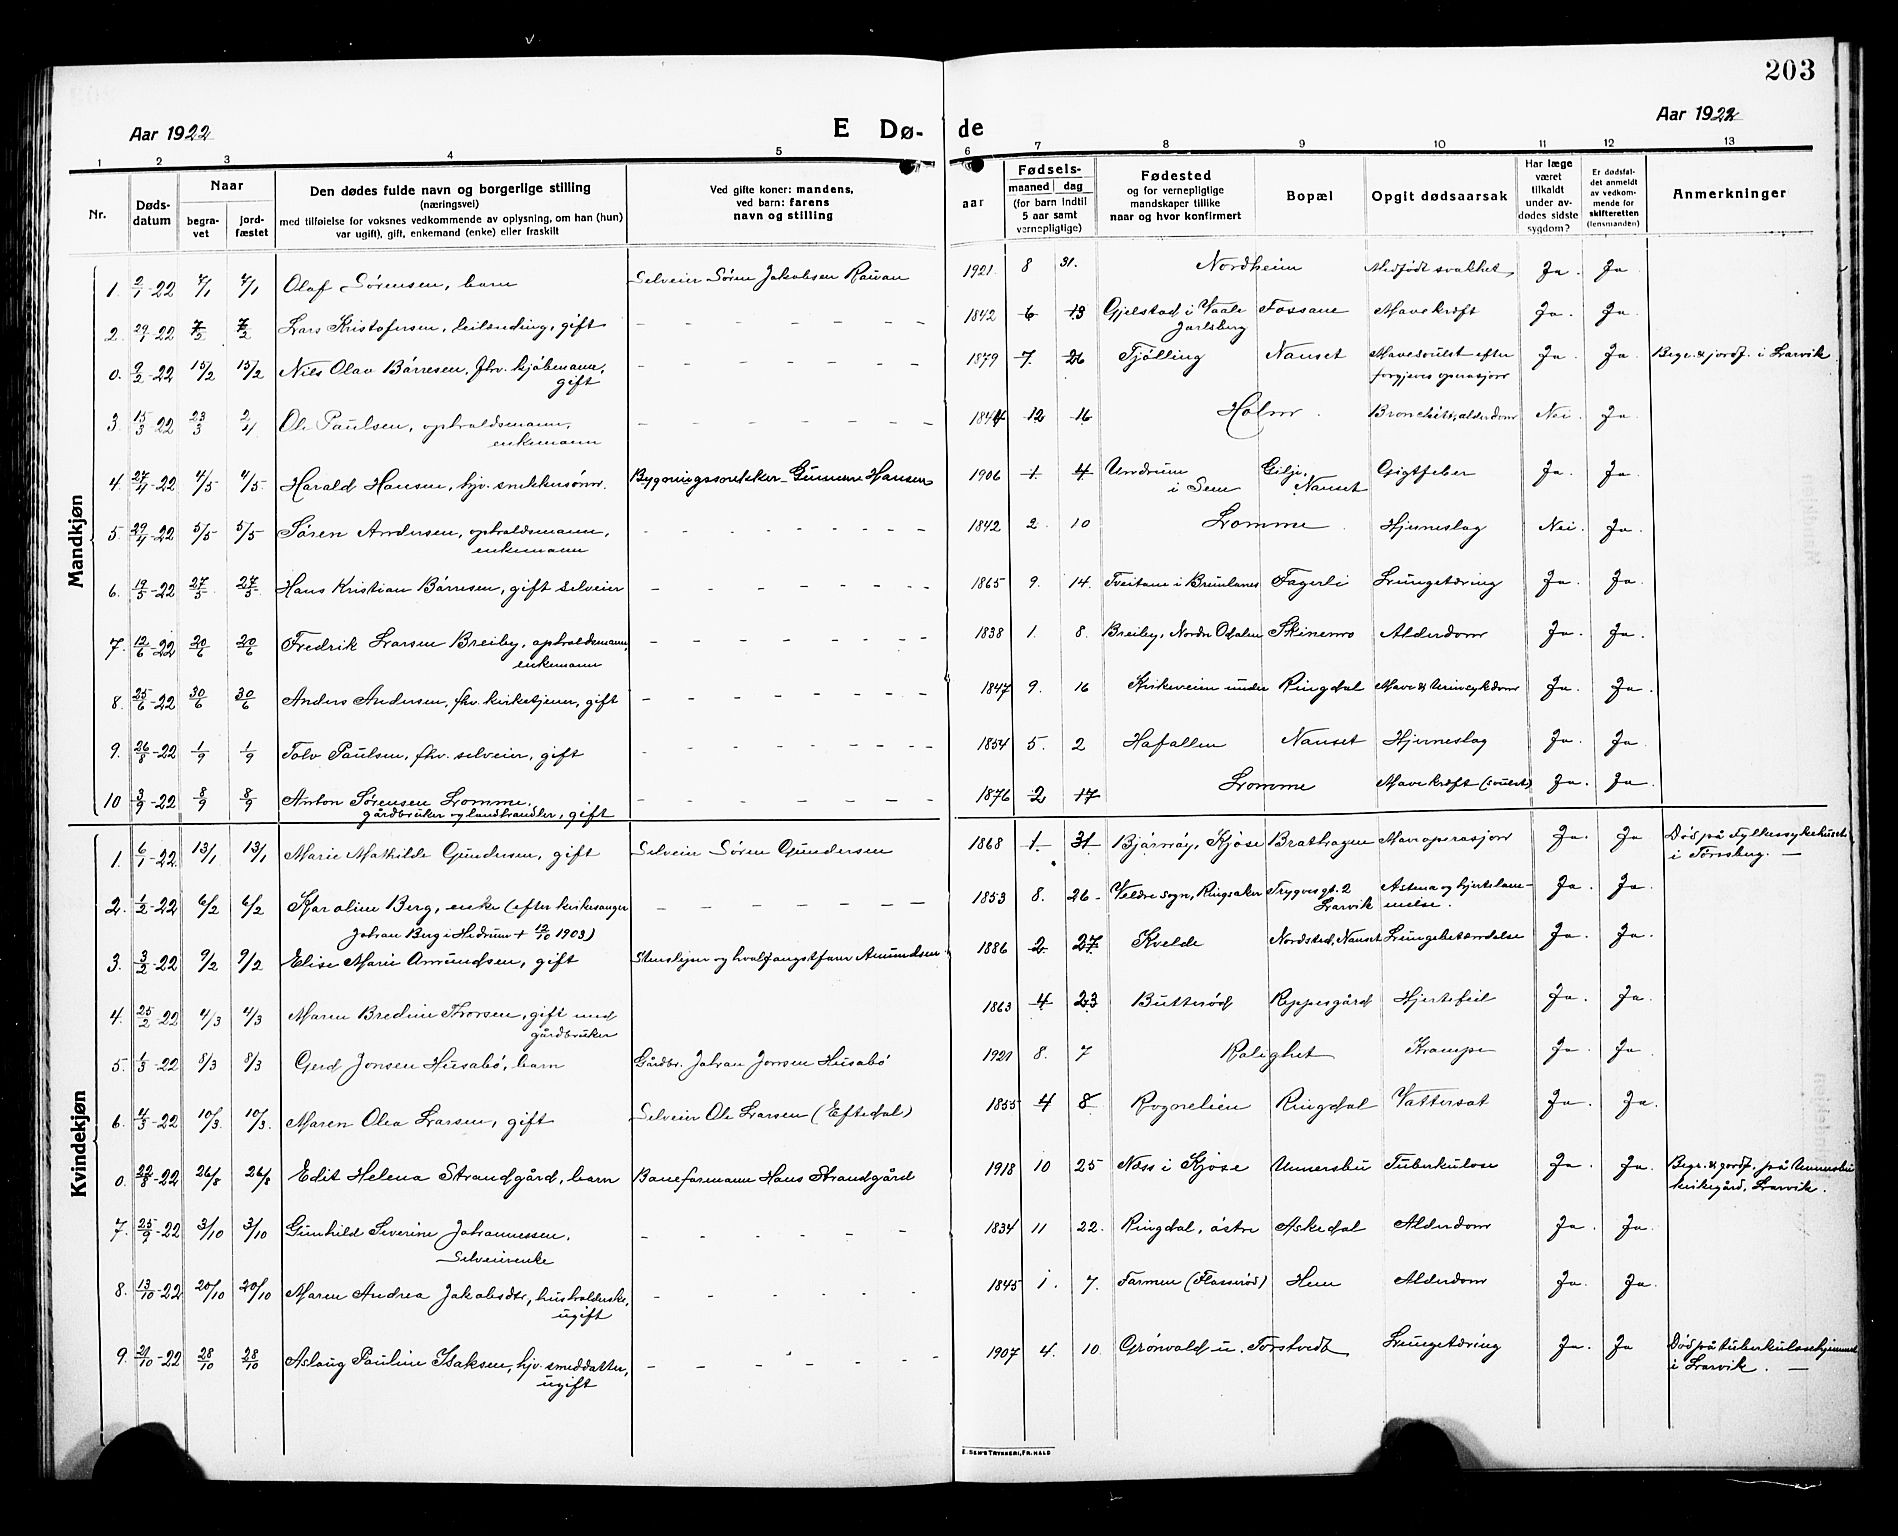 203
Aar 1922
E Dø-
de
Aar 1922
1 2 3 4 5 6 7 8 9 10 11 12 13
Nr.
Døds-
datum
Naar
begra-
vet
jord-
fæstet
Den dødes fulde navn og borgerlige stilling
(næringsvei)
med tilføielse for voksnes vedkommende av oplysning, om han (hun)
var ugift), gift, enkemand (enke) eller fraskilt
Ved gifte koner: mandens,
ved barn: farens
navn og stilling
aar
Fødsels-
maaned dag
(for barn indtil
5 aar samt
vernepligtige)
Fødested
og for vernepligtige
mandskaper tillike
naar og hvor konfirmert
Bopæl
Opgit dødsaarsak
Har læge
været
tilkaldt
under av-
dødes sidste
sygdom?
Er dødsfal-
det anmeldt
av vedkom-
mende for
skifteretten
(lensmanden)
Anmerkninger
Mandkjøn
1. 2/1-22 7/1 7/1 Olaf Sørensen, barn Selveier Søren Jakobsen Rauan 1921 8 31. Nordheim Medfødt svakhet Ja. Ja
2. 29/1-22 7/2 7/2 Lars Kristofersen, leilending, gift - - - - - - - 1842 6 13 Gjelstad i Vaale Fossane Mavekræft Ja. Ja.
Jarlsberg
0. 9/2-22 15/2 15/2 Niels Olav Børresen, fhv. kjøbmann, - - - - - - - 1879 7. 26 Tjølling Nanset Mavesvulst efter Ja. Ja. Begr. & jordf. i Larvik
gift forgjeves operasjon
3. 15/3-22 23/3 2/4 Ole Paulsen, opholdsmann, - - - - - - - 1844 12 16 Holm. Bronchitt, alderdom Nei. Ja.
enkemann
4. 27/4-22 4/5 4/5. Harald Hansen, hjv. snekkersønn. Bygningssnekker Gunnar Hansen 1906 1 4 Undrum Gilje, Gigtfeber Ja. Ja.
i Sem Nanset
5. 29/4-22 5/5 5/5. Søren Andersen, opholdsmann, - - - - - - - 1842 2. 10 Lomme. Hjerneslag Nei. Ja.
enkemann
6. 19/5-22 27/5 27/5. Hans Kristian Børresen, gift selveier - - - - - - - 1865 9. 14. Treitane i Brunlanes Fagerli Lungetæring Ja. Ja.
7. 12/6-22 20/6 20/6 Fredrik Larsen Breiby, opholdsmann, - - - - - - - 1838 1. 8. Breiby, Nordre Odalen Skinmo Alderdom Ja. Ja.
enkemann
8. 25/6-22 30/6 30/6 Anders Andersen, fhv. kirketjener, gift - - - - - - - 1847 9. 16 Kirkeveien under Ringdal Mave & Urinsykdom Ja. Ja.
9. 26/8-22 1/9 1/9 Tolv Paulsen, fhv. selveier, gift - - - - - - - 1854 5. 2 Hafallen Nanset Hjerneslag Ja. Ja.
10 3/9-22 8/9 8/9 Anton Sørensen Lomme, - - - - - - - 1876 2 17 Lomme Mavekræft (svulst) Ja. Ja.
gårdbruker og landhandler, gift
Kvindekjøn
1. 6/1-22 13/1 13/1 Marie Mathilde Gundersen, gift Selveier Søren Gundersen 1868 1 31 Bjørnøy, Kjose Brathagen Maveoperasjon Ja. Ja Død på Fylkessykehuset
i Tønsberg. -
2. 1/2-22 6/2 6/2 Karoline Berg, enke (efter kirkesanger - - - - - - - 1853 8. 26 - Veldre sogn, Ringsaker Trygvesgt. 2 Astma og hjertelam- Ja. Ja.
Johan Berg i Hedrum + 12/10 1903) Larvik melse.
3. 3/2-22 9/2 9/2 Elise Marie Amundsen, gift Steneleier og hvalfangstform Amundsen 1886 2 27 Kvelde Nordsted, Nanset Lungebetændelse Ja. Ja.
4. 25/2-22 4/3 4/3 Maren Bredine Thorsen, gift med 1863 4 23 Butterød Reppesgård Hjertefeil Ja. Ja.
gårdbruker
5. 1/3-22 8/3 8/3 Gerd Jonsen Husabø, barn Gårdbr. Johan Jonsen Husabø 1921 8. 7 Rolighet Krampe Ja. Ja.
6. 4/3-22 10/3. 10/3. Maren Olea Larsen, gift Selveier Ole Larsen (Eftedal) 1855 4 8 Rognelien Ringdal Vattersot Ja. Ja.
0. 22/8-22 26/8 26/8 Edit Helena Strandgård, barn Baneformann Hans Strandgård 1918 10 25 Næss i Kjose Unnersbu Tuberkulose Ja. Ja. Begr. & jordf. på Unnersbu
kirkegård, Larvik.
7. 25/9-22 3/10 3/10 Gunhild Severine Johannessen, - - - - - - 1834 11 22. Ringdal, østre Askedal Alderdom Ja. Ja.
Selveierenke
8. 13/10-22 20/10 20/10 Maren Andrea Jakobsdtr., husholderske, - - - - - - 1845 1. 7. Farmen (Flasserød) Hem Alderdom Ja. Ja.
ugift
9. 21/10-22 28/10 28/10 Aslaug Pauline Isaksen, hjv. smeddatter, - - - - - - - 1907 4. 10. Grønvold u. Torstvedt Lungetæring Ja. Ja Død på tuberkulosehjemmet
ugift i Larvik. -
E. SEM'S TRYKKERI, FR.HALD